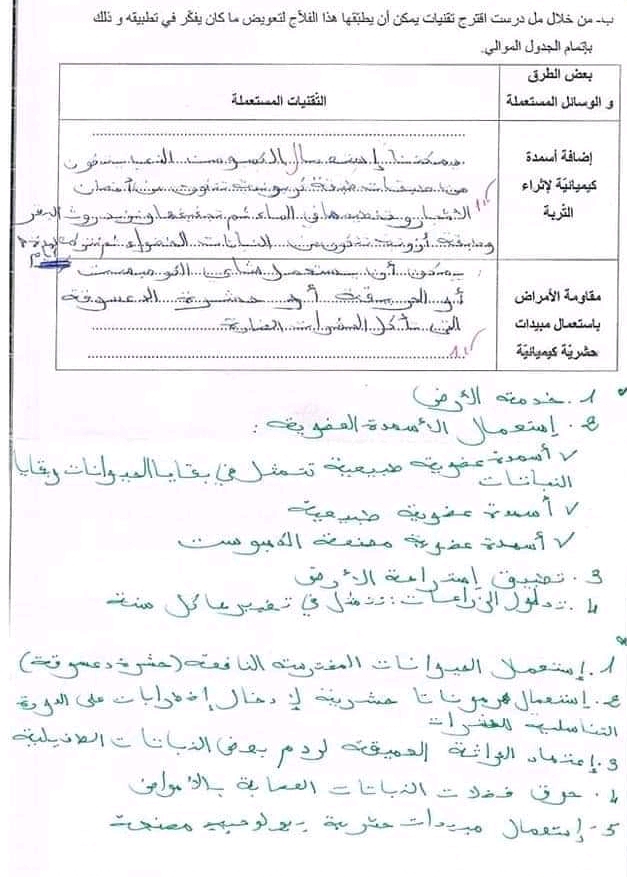 ب- من خلال مل درست اقترح تقنيات يمكن أن يطبّقها هذا الفلاّح لتعويض ما كان يفكّر في تطبيقه و ذلك
بإتمام الجدول الموالي.
بعض الطرق
و الوسائل المستعملة
التّقنيات المستعملة
إضافة أسمدة
كيميائيّة لإثراء
التّربة
يمكننا إستعمال الكمبوست الذي يتكون
من طبقات طبقة كربونية تتكون من أغصان
الأشجار و نخطيها في الماء ثم نجففها و نزيد روث البقر
وطبقة أزوتية تتكون من النباتات الخضراء ثم نتركه لمدة
مقاومة الأمراض
باستعمال مبيدات
حشريّة كيميائيّة
يمكن أن يستعمل شاي الكومبست
أو الحريقة أو حشرة الدعسوقة
التي تأكل الحشرات الضارة
1. خدمة الأرض
2. إستعمال الأسمدة العضوية :
✓ أسمدة عضوية طبيعية تتمثل في بقايا الحيوانات وبقايا
النباتات
✓ أسمدة عضوية طبيعية
✓ أسمدة عضوية مصنعة الكمبوست
3. تطبيق إستراحة الأرض
4. تداول الزراعات : تتمثل في تغييرها كل سنة
1. إستعمل الحيوانات المفترسة النافعة (حشرة دعسوقة)
2. إستعمال هرمونات حشرية لإدخال إضطرابات على الدورة
التناسلية للحشرات
3. إعتماد الحراثة العميقة لردم بعض النباتات الطفيلية
4. حرق فضلات النباتات المصابة بالأمراض
5- إستعمال مبيدات حشرية بيولوجية مصنعة